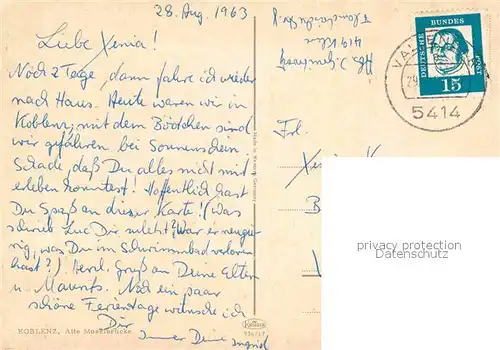 28. Aug. 1963
Liebe Xenia!
Noch 2 Tage, dann fahre ich wieder
nach Haus. Heute waren wir in
Koblenz; mit dem Bötchen sind
wir gefahren bei Sonnenschein.
Schade, daß Du alles nicht mit
erleben konntest! Hoffentlich hast
Du Spaß an dieser Karte! (Was
schrieb Luc Dir zuletzt? War er neugie-
rig, was Du im Schwimmbad verloren
hast?) Herzl. Gruß an Deine Eltern
u. Maurits. Noch ein paar
schöne Ferientage wünsche ich
Dir
Immer Deine Ingrid
KOBLENZ, Alte Moselbrücke
Abs.
419 Kleve
DEUTSCHE BUNDESPOST
15
5414
Frl.
Xenia K
B
privacy protection
Datenschutz
Krüger